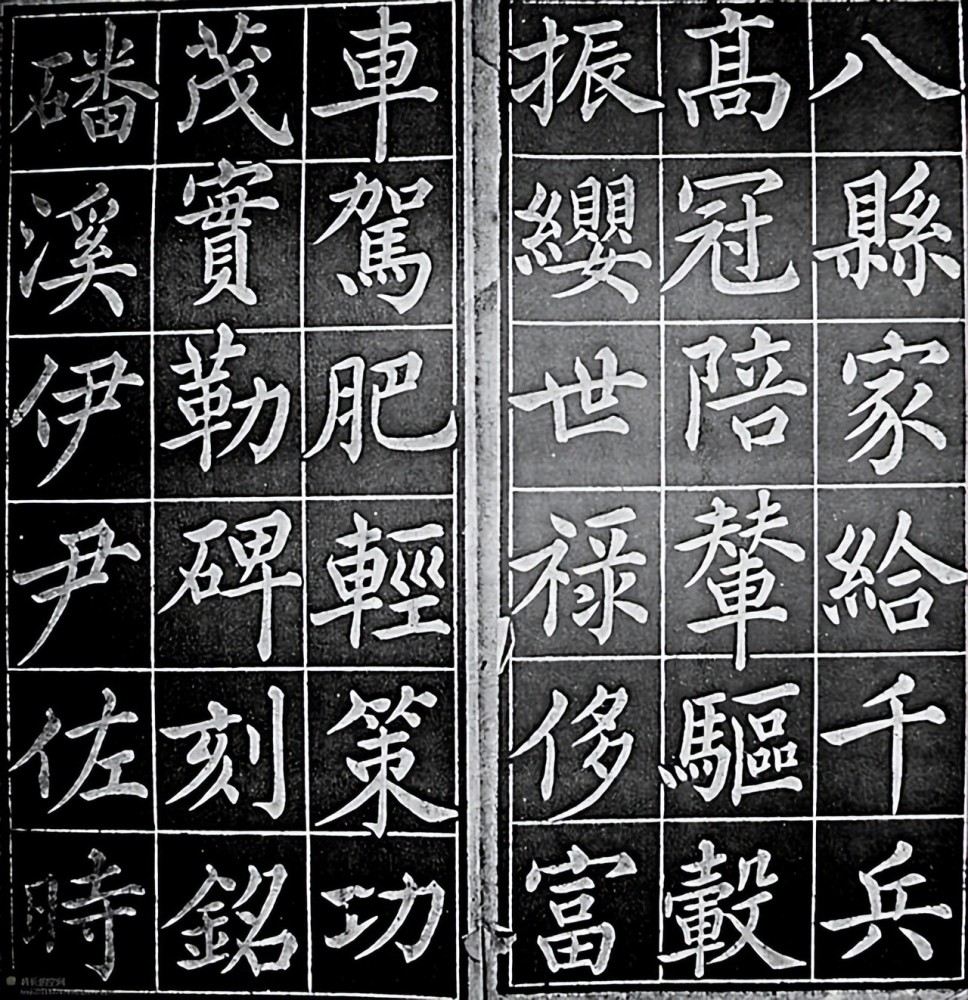 八縣家給千兵
高冠陪輦驅轂
振纓世祿侈富
車駕肥輕策功
茂實勒碑刻銘
磻溪伊尹佐時